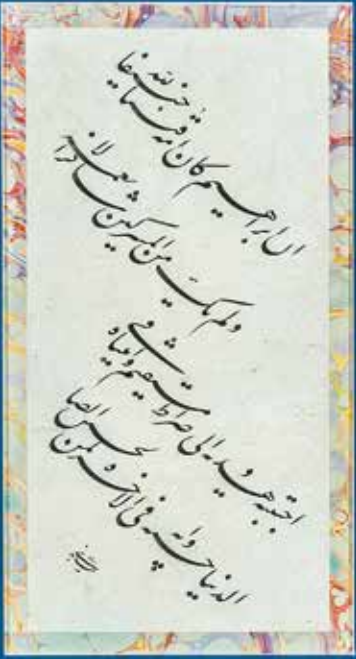 ان ابراهيم كان امة قانتا لله حنيفا
ولم يكَ من المشركين شاكرا لانعمه
اجتبيه وهديه الى صراط مستقيم واتيناه في
الدنيا حسنة وانه في الاخرة لمن الصالحين